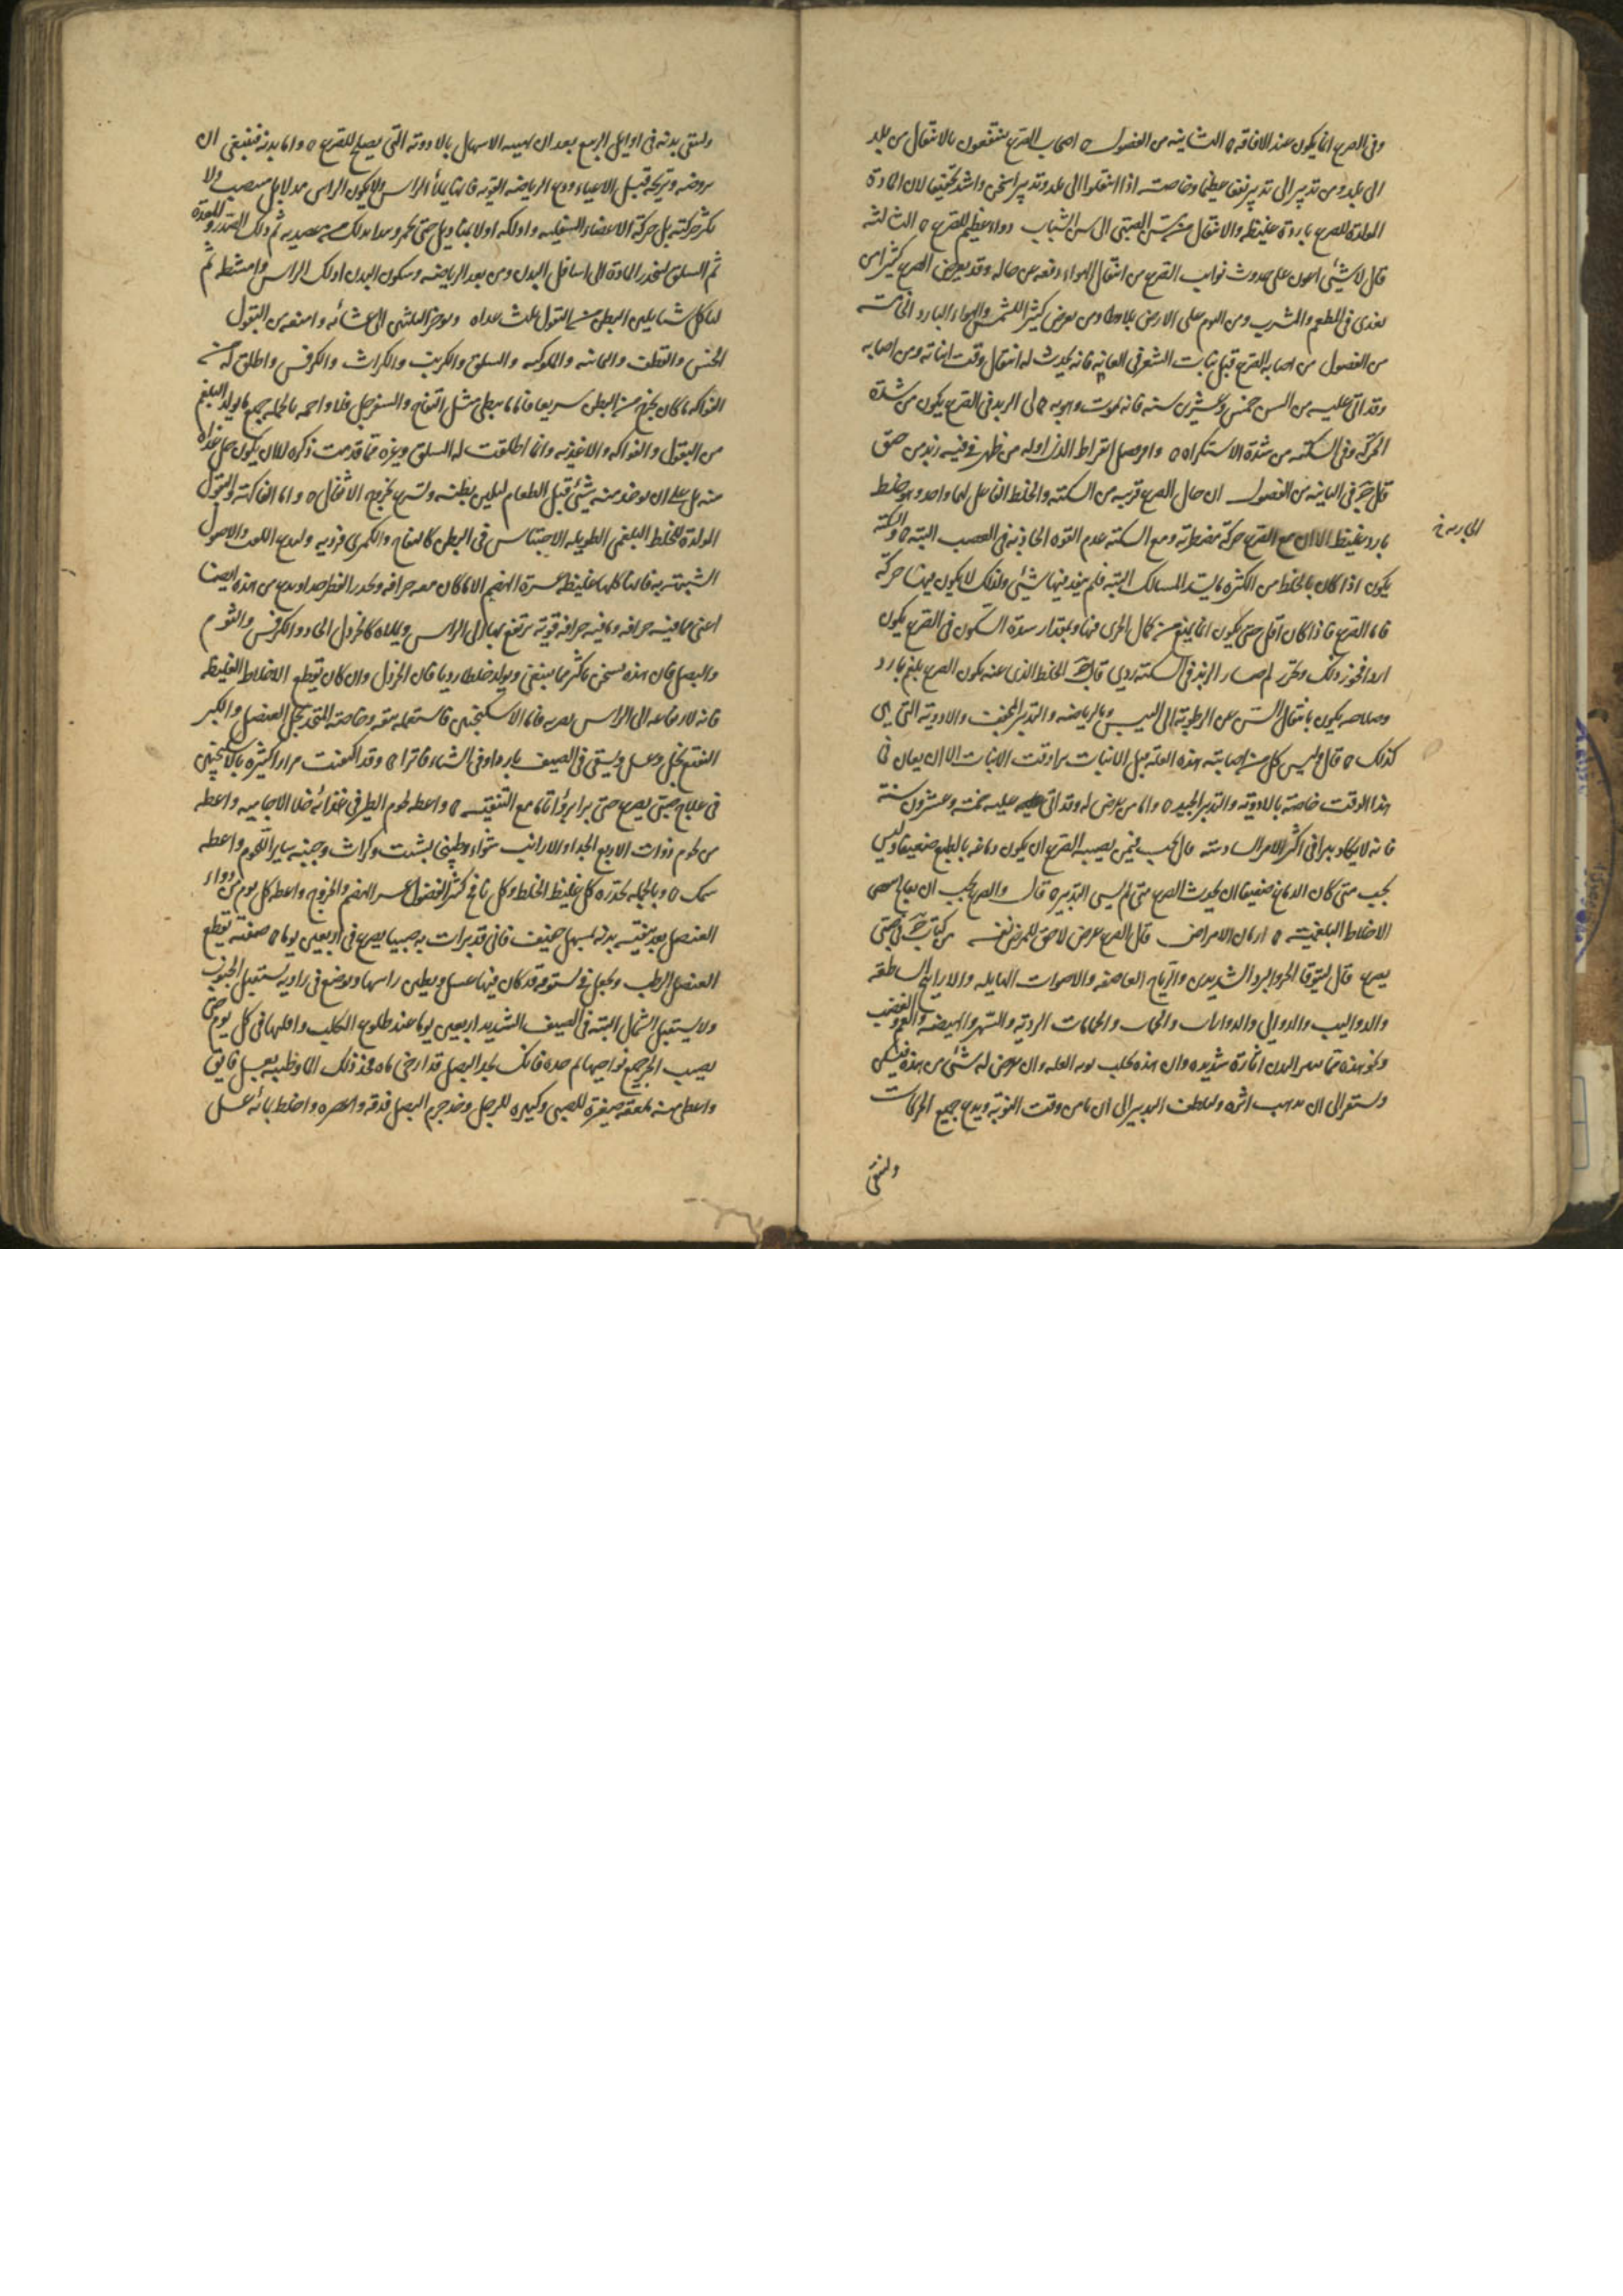 وفى الصرع انما يكون عند الافاقه ٥ الثانيه من الفصول ٥ اصحاب الصرع ينتفعون بالانتقال من بلد
الى بلد ومن تدبير الى تدبير نفعا عظيما وخاصته اذا انتقلوا الى بلد وتدبير اسخن واشد تجفيفا لان المادة
المولدة للصرع باردة غليظه والانتقال من سن الصبى الى سن الشباب دواء عظيم للصرع ٥ الثالثه
قال لا شيئ اعون على حدوث نوايب الصرع من انتقال الهواء دفعه عن حاله وقد يعرض الصرع كثيرا من
فى المطعم والمشرب ومن النوم على الارض بلا وطا ومن تعرض كثيرا للشمس والهواء البارد الخامسه
من الفصول من اصابه الصرع قبل نبات الشعر فى العانه فانه يحدث له انتقال وقت انباته ومن اصابه
وقد اتى عليه من السن خمس وعشرين سنه فانه يموت وهو به ٥ لى الزبد فى الصرع يكون من شدة
الحركه وفى السكته من شدة الاستكراه ٥ وافصل ابقراط الذى اوله من ظهر فى فيه زبد من خنق
قال ج فى الثانيه من الفصول ان حال الصرع قريبه من السكته والخلط الفاعل لهما واحد وهو خلط
بارد غليظ الا ان مع الصرع حركة مضطربه ومع السكته عدم القوه الجاريه فى العصب البته ٥ والسكته
الجاريه خ
يكون اذا كان بالخلط من الكثره ما يسد المسالك البته فلم ينفذ فيها شيئى ولذلك لا يكون فيها حركة
فاما الصرع فاذا كان اقل حتى يكون انما يمنع من كمال الجرى فيها وبمقدار سدة السكون فى الصرع يكون
لم صار الزبد فى السكته ردي قال ج الخلط الذى عنه يكون الصرع بلغم بارد
وصلاحه يكون بانتقال السن عن الرطوبة الى اليبس وبالرياضه والتدبير المجفف والادوية التى هى
كذلك ٥ قال وليس كل من اصابته هذه العله قبل الانبات برا وقت الانبات الا ان يعان فى
هذا الوقت خاصة بالادوية والتدبير الجيد ٥ واما من يعرض له وقد اتى عليه خمسة وعشرون سنة
فانه لا يكاد يبرا فى اكثر الامر السادسته قال يجب فيمن يصيبه الصرع ان يكون دماغه بالطبع ضعيفا وليس
يجب متى كان الدماغ ضعيفا ان يحدث الصرع متى لم يسى التدبير ٥ قال والصرع يجب ان يعالج
الاخلاط البلغميته ٥ ازمان الامراض قال الصرع عرض لاحق للمرض نفسه من كتاب ج فى صبى
يصرع قال ليتوقا الحر والبرد الشديدين والرياح العاصفه والاصوات الهايله والارايح الساطعه
والدواليب والدوالى والدوارات والحمات والحمامات الردئه والسهر والهيضه والغم والغضب
ونحو هذه مما يثير البدن اثارة شديده وان هذه تجلب نوبه العله وان عرض له شئى من هذه فليسكن
وليستقر الى ان يذهب اثره وليلطف التدبير الى ان يامن وقت النوبة ويدع جميع الحركات
ولينقى
ولينقى بدنه فى اوايل الربيع بعد ان الاسهال بالادوية التى يصلح للصرع ٥ واما بدنه فينبغى ان
يروضه ويريحه قبل الاعياء ودع الرياضه القويه فانها تملأ الراس ولا يكون الراس مدلا بل منتصب ولا
تكثر حركته بل حركة الاعضاء السفليه وادلكه اولا بمناديل حتى يحمر ثم دلك الصدر والمعدة
ثم الساق لتحدر المادة الى اسافل البدن ومن بعد الرياضه وسكون البدن ادلك الراس وامشطه ثم
لياكل شيا يلين البطن من البقول ويوخر الى عشائه وامنعه من البقول
الخس والقطف واليمانيه والملوكيه والسلق والكرنب والكراث والكرفس واطلق له من
الفواكه ما كان يخرج من البطن سريعا فاما ما يبطى مثل التفاح والسفرجل فلا واحمه بالجمله جميع ما يولد البلغم
من البقول والفواكه والاغذيه وانما اطلقت له السلق وغيره مما قدمت ذكره لا لان يكون جل غذاه
منه بل على ان يوخذ منه شيئى قبل الطعام ليلين بطنه ويسرع بخروج الاثفال ٥ واما الفاكهة والبقول
المولدة للخلط البلغمى الطويله الاحتباس فى البطن كالتفاح والكمثرى فرديه وليدع اللفت والاصول
الشبيهة به فانها كلها غليظه عسرة الهضم الا ما كان معه حرافه وليحذر الفطر جدا وليدع من هذه ايضا
اعنى مما فيه حرافه ما فيه حرافه قوية ترتفع بها الى الراس ويملاه كالخردل الحاد والكرفس والثوم
والبصل فان هذه تسخن باكثر مما ينبغى ويولد خلطا رديا فان الخردل وان كان يقطع الاخلاط الغليظه
فانه لارتفاعه الى الراس يضر به فاما الاسكنجبين فاستعمله بثقه وخاصته المتخذ بخل العنصل والكبر
النقع بخل وعسل ويسقى فى الصيف باردا وفى الشتاء فاترا ٥ وقد اكتفيت مرارا كثيرة بالاسكنجبين
فى علاج صبى يصرع حتى برا برؤا تاما مع التنقيته ٥ واعطه لحوم الطير فى غذائه خلا الاجاميه واعطه
من لحوم ذوات الاربع الجدا والارانب شواء وطبيخ بشبت وكراث وجنبه ساير اللحوم واعطه
سمك ٥ وبالجمله تحذره كل غليظ الخلط وكل نافخ كثير الفضول عسر الهضم والخروج واعطه كل يوم من دواء
العنصل بعد تنقيته بدنه بمسهل خفيف فانى قد ابرات به صبيا يصرع فى اربعين يوما ٥ صفته يقطع
العنصل الرطب ويجعل فى بستوقه قد كان فيها عسل ويطين راسها ويوضع فى زاويه يستقبل الجنوب
ولا يستقبل الشمال البته فى الصيف الشديد اربعين يوما عند طلوع الكلب واقلبها فى كل يوم حتى
يصيب الحر جميع نواحيها ثم خذه فانك تجد البصل قد ارخى ماه فخذ ذلك الما وطيبه بعسل فايق
واعط منه ملعقه صغيرة للصبى وكبيره للرجل وخذ جرم البصل فدقه واعصره واخلط بمائه عسل